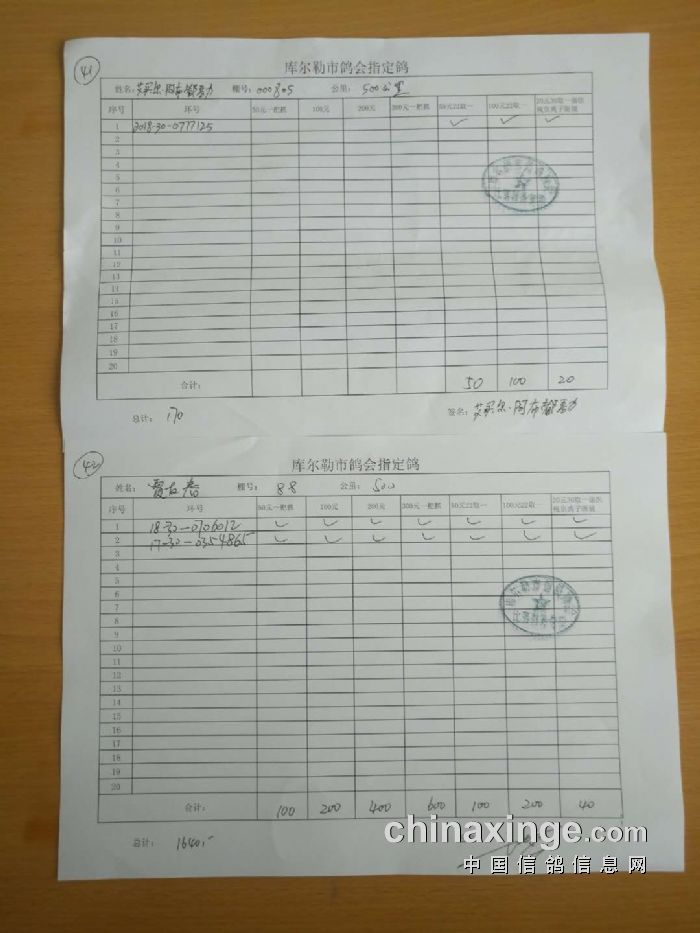 41
库尔勒市鸽会指定鸽
姓名: 艾买尔·阿布都吾力 棚号: 000805 公里: 500公里
序号 环号 50元一把抓 100元 200元 300元一把抓 50元22取一 100元22取一
1 2018-30-0777125 ✓ ✓ ✓
2
3
4
5
6
7
8
9
10
11
12
13
14
15
16
17
18
19
20
合计: 50 100 20
总计: 170 签名:
42
库尔勒市鸽会指定鸽
姓名: 棚号: 88 公里: 500
序号 环号 50元一把抓 100元 200元 300元一把抓 50元22取一 100元22取一
1 18-30-0106012 ✓ ✓ ✓ ✓ ✓ ✓ ✓
2 17-30-0354865 ✓ ✓ ✓ ✓ ✓ ✓ ✓
3
4
5
6
7
8
9
10
11
12
13
14
15
16
17
18
19
20
合计: 100 200 400 600 100 200 40
总计: 1640.-
chinaxinge.com
中国信鸽信息网